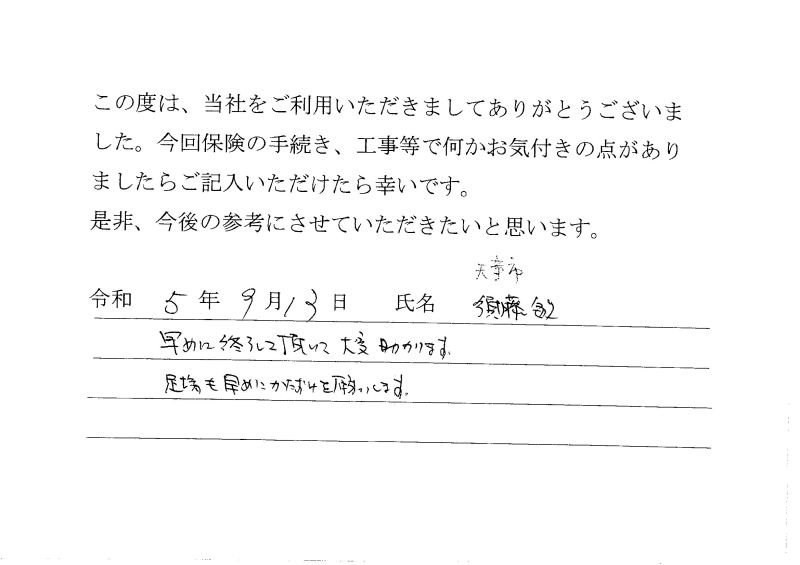 この度は、当社をご利用いただきましてありがとうございま
した。今回保険の手続き、工事等で何かお気付きの点があり
ましたらご記入いただけたら幸いです。
是非、今後の参考にさせていただきたいと思います。
天童市
令和 5 年 9 月 13 日 氏名 須藤
早めに終らして頂いて 大変 助かります。
足場も早めにかたずけを願いします。